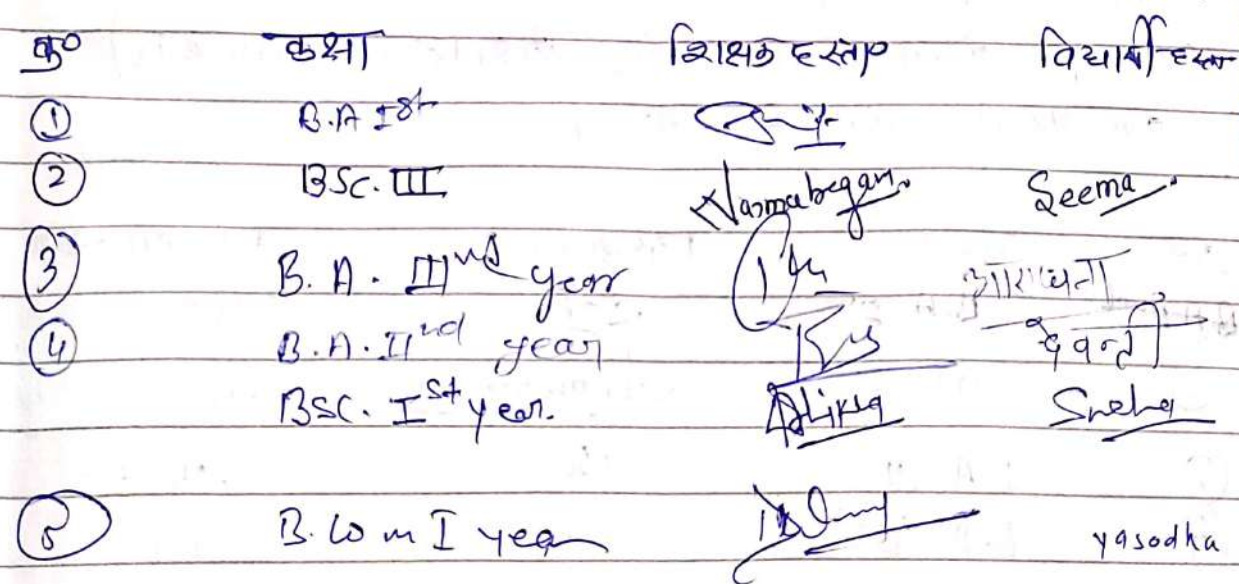 क्र० कक्षा शिक्षक हस्ता० विद्यार्थी हस्ता
① B.A Ist
② BSC. III Seema
③ B. A. IIInd year आराधना
④ B.A. IInd year देवन्ती
BSC. Ist year. Sneha
B. Com I year yasodha